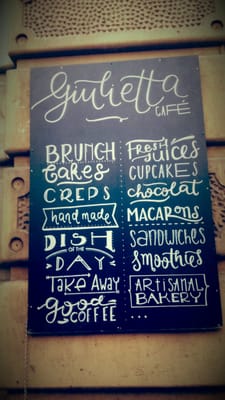 Giulietta
CAFÉ
BRUNCH
Cakes
CREPS
hand made
DISH
OF THE
DAY
TAKE AWAY
good
COFFEE
FRESH
JUICES
CUPCAKES
chocolat
MACARONS
SANDWICHES
Smoothies
ARTISANAL
BAKERY
...